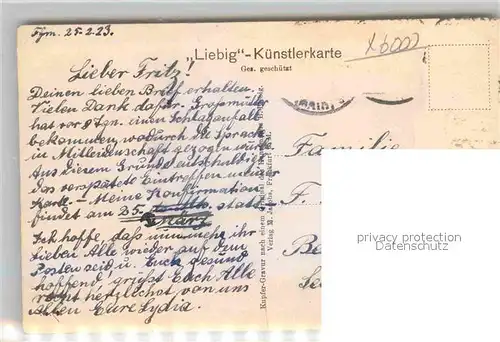 Ffm. 25.2.23.
"Liebig"-Künstlerkarte
Ges. geschützt
Lieber Fritz!
Deinen lieben Brief erhalten.
Vielen Dank dafür. Großmutter
hat vor 8 Tgn. einen Schlaganfall
bekommen, wodurch die Sprache
in Mitleidenschaft gezogen wurde.
Aus diesem Grunde entschuldigt
das verspätete Eintreffen unserer
Karte. – Meine Konfirmation
findet am 25. statt.
März
Ich hoffe, daß nunmehr ihr
Lieben Alle wieder auf dem
Posten seid u. Euch gesund
hoffend grüßt Euch Alle
recht herzlichst von uns
Allen Eure Lydia.
Kupfer-Gravur nach einem Original
Verlag M. Jacobs, Frankfurt a. M.
Familie
F.
privacy protection
Datenschutz